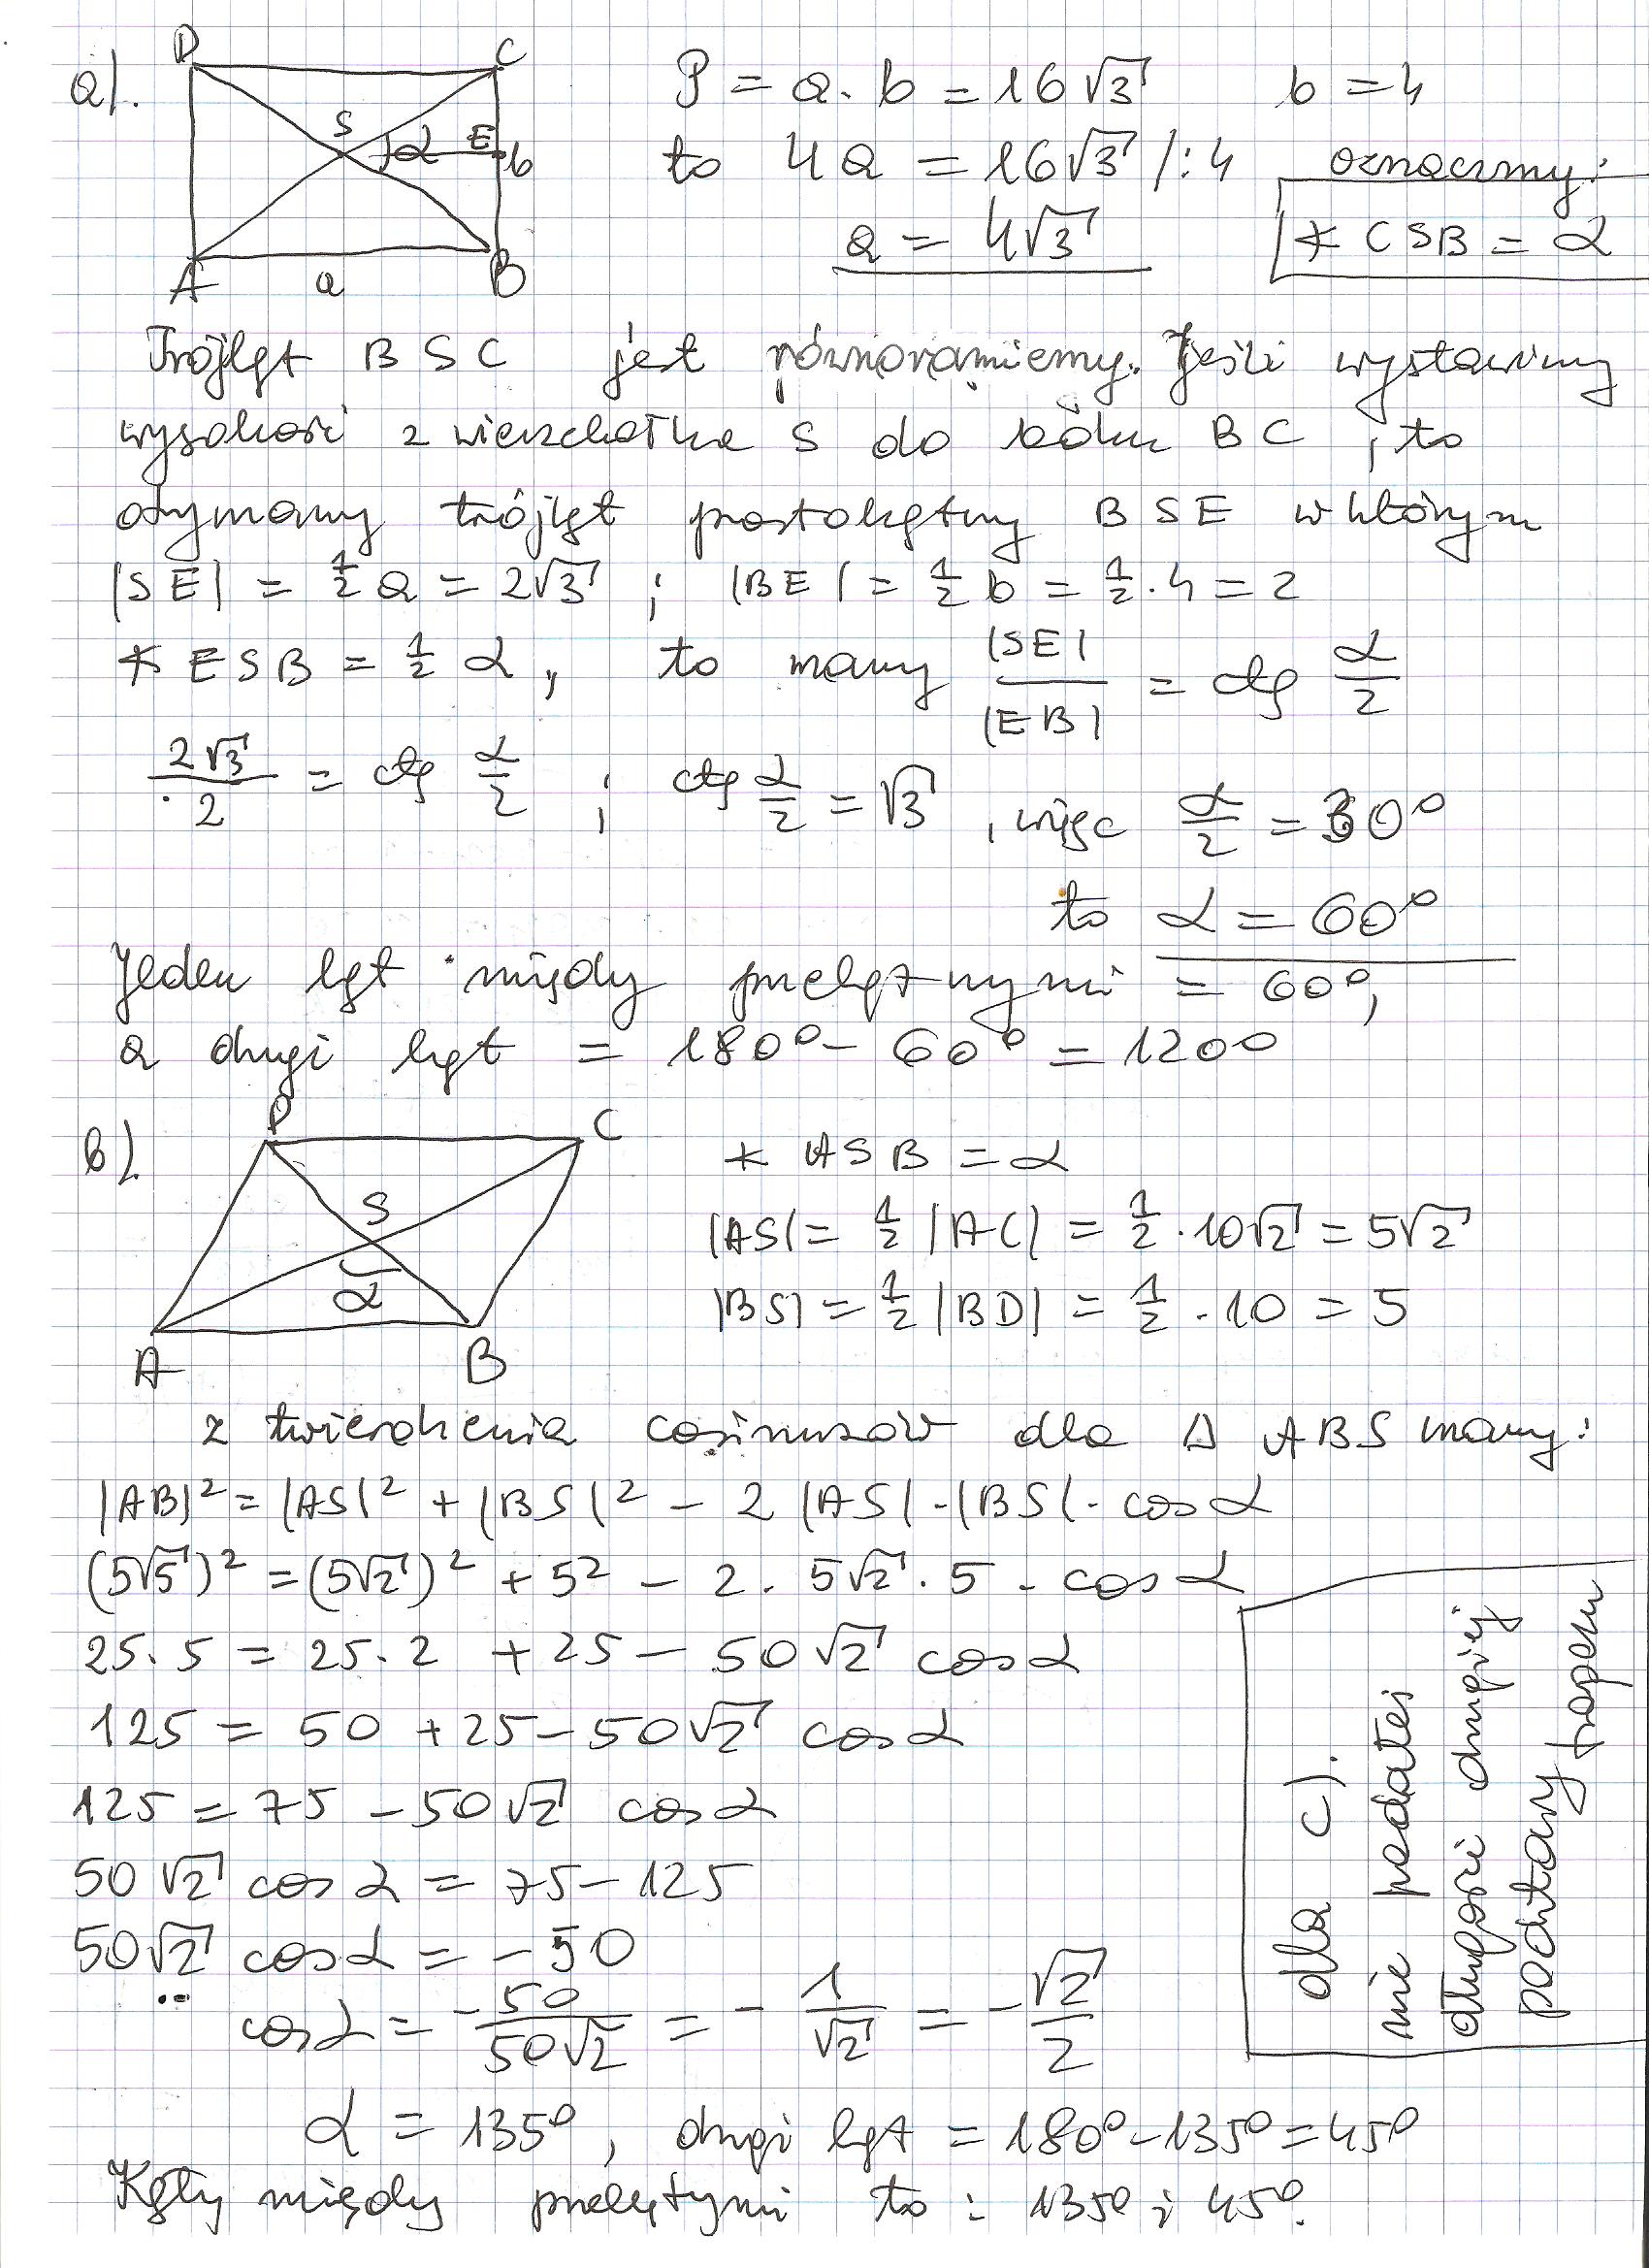 a).
D C
S α E b
A a B
P = a · b = 16√3 b = 4
to 4a = 16√3 /:4 oznaczmy:
a = 4√3 ∢ CSB = α
Trójkąt BSC jest równoramienny. Jeśli wystawimy
wysokość z wierzchołka S do boku BC, to
otrzymamy trójkąt prostokątny BSE w którym
|SE| = 1/2 a = 2√3 ; |BE| = 1/2 b = 1/2 · 4 = 2
∢ ESB = 1/2 α, to mamy |SE|/|EB| = ctg α/2
2√3/2 = ctg α/2 ; ctg α/2 = √3, więc α/2 = 30°
to α = 60°
Jeden kąt między przekątnymi = 60°,
a drugi kąt = 180° - 60° = 120°
b).
D C
S
α
A B
∢ ASB = α
|AS| = 1/2 |AC| = 1/2 · 10√2 = 5√2
|BS| = 1/2 |BD| = 1/2 · 10 = 5
z twierdzenia cosinusów dla Δ ABS mamy:
|AB|² = |AS|² + |BS|² - 2 |AS| · |BS| · cos α
(5√5)² = (5√2)² + 5² - 2 · 5√2 · 5 · cos α
25 · 5 = 25 · 2 + 25 - 50√2 cos α
125 = 50 + 25 - 50√2 cos α
125 = 75 - 50√2 cos α
50√2 cos α = 75 - 125
50√2 cos α = -50
cos α = -50/50√2 = -1/√2 = -√2/2
α = 135°, drugi kąt = 180° - 135° = 45°
Kąty między przekątymi to : 135° i 45°.
dla c).
nie podałeś
długości drugiej
podstawy trapezu